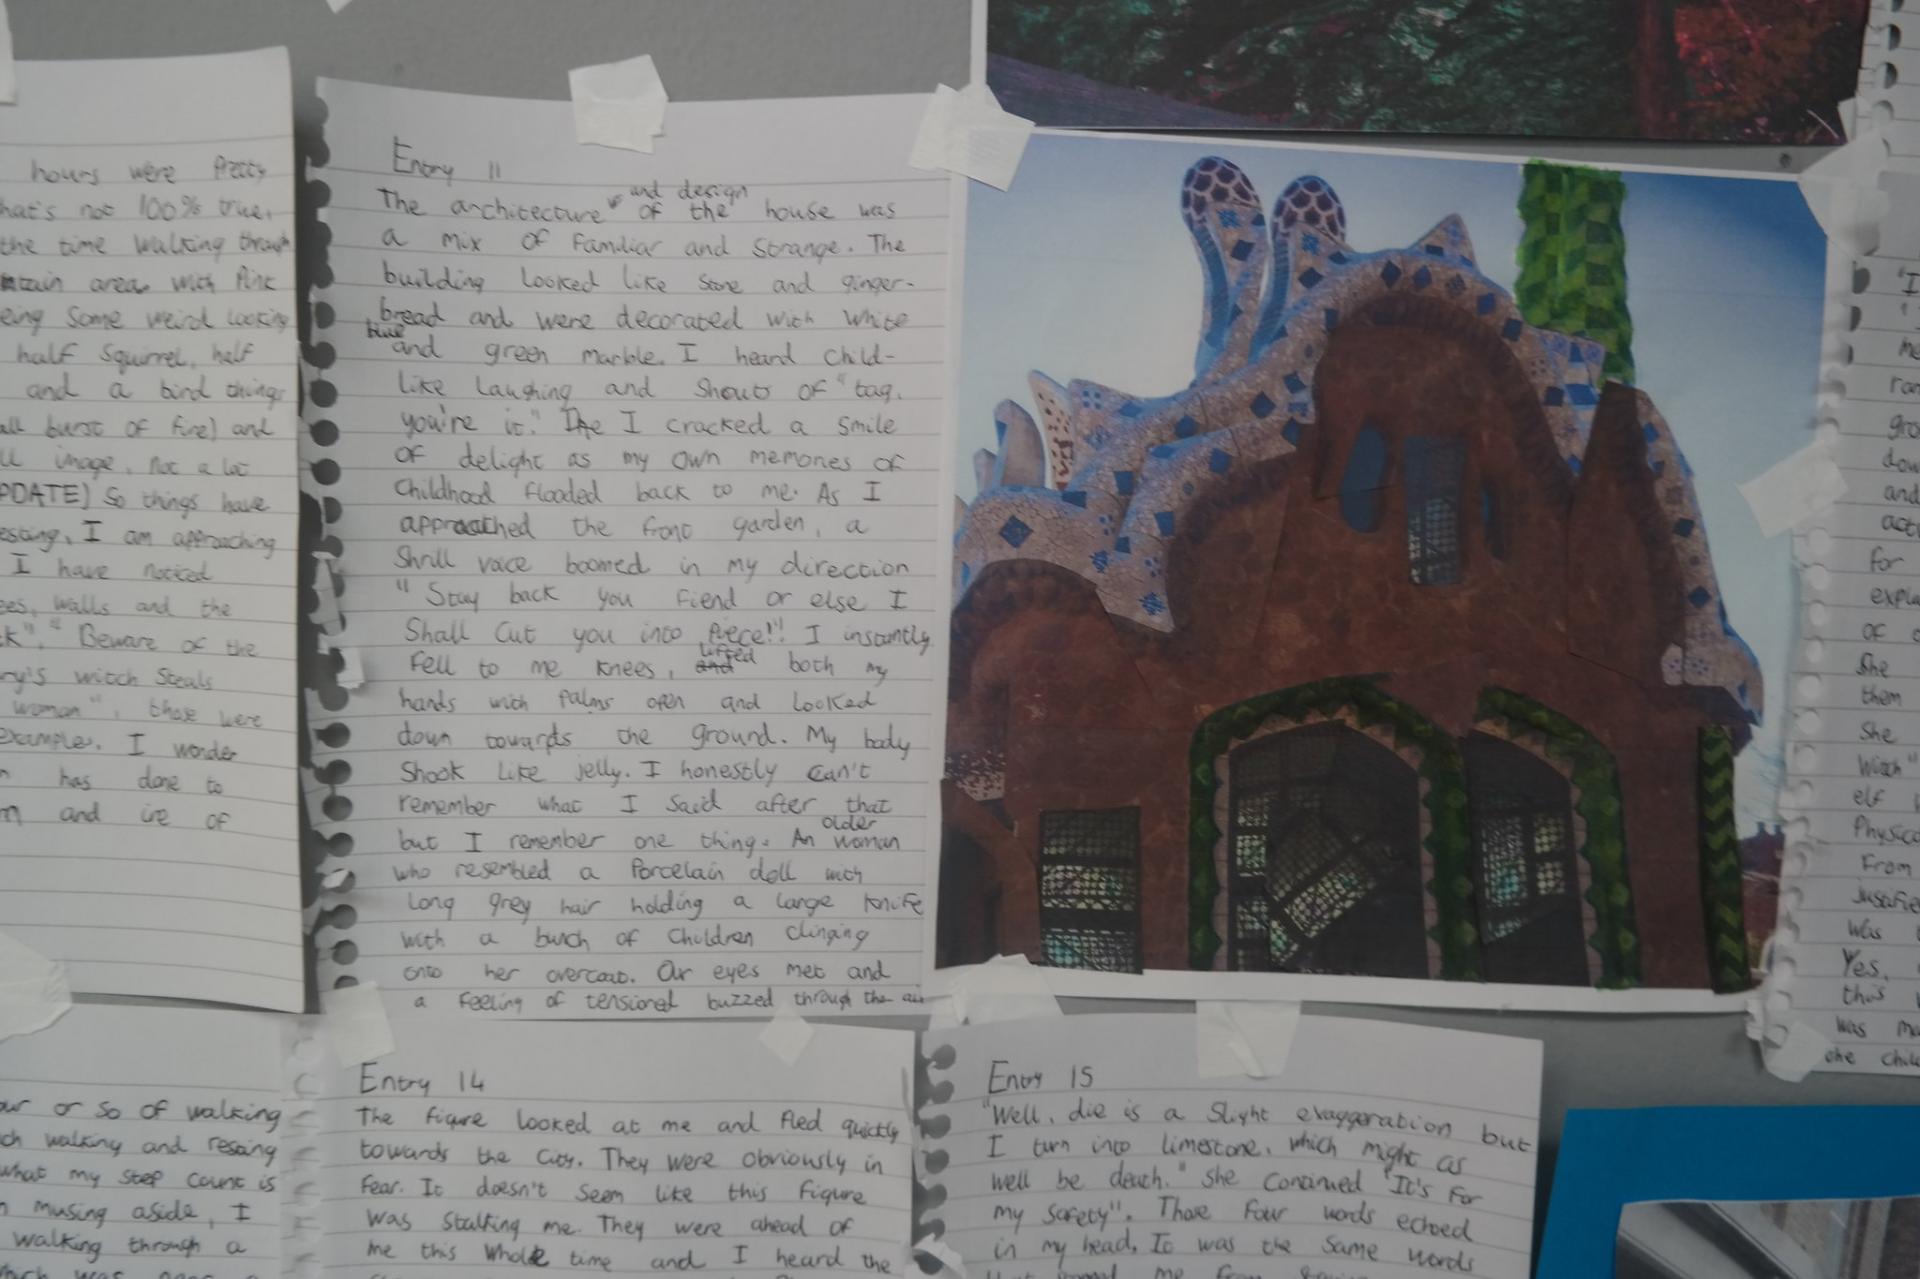 hours were Pretty
hat's not 100% true,
the time walking through
ntain area with Pink
eing Some weird looking
half Squirrel, half
and a bird things
all burst of fire) and
ll image, not a lot
PDATE) So things have
esting, I am approaching
I have noticed
ees, walls and the
k". "Beware of the
ry's witch Steals
woman", those were
example. I wonder
n has done to
m and ire of
Entry 11
The architecture and design of the house was
a mix of Familiar and Strange. The
building looked like Stone and ginger-
bread and were decorated with white
blue and green marble. I heard child-
like laughing and Shouts of "tag,
you're it." I cracked a Smile
of delight as my own memories of
Childhood flooded back to me. As I
approached the front garden, a
Shrill voice boomed in my direction
"Stay back you fiend or else I
Shall Cut you into Piece!" I instantly
Fell to me knees, and lifted both my
hands with Palms open and Looked
down towards the ground. My body
Shook like jelly. I honestly can't
remember what I Said after that
but I remember one thing. An older woman
who resembled a Porcelain doll with
Long grey hair holding a large knife
with a bunch of Children Clinging
onto her overcoat. Our eyes met and
a Feeling of tensioned buzzed through the air
"I
me
ran
gro
dow
and
act
For
expla
of
She
them
She
Witch"
elf
Physica
From
Justifie
was
Yes,
this
was ma
the child
our or so of walking
ch walking and resting
what my Step Count is
n musing aside, I
walking through a
Entry 14
The figure looked at me and fled quickly
towards the City. They were obviously in
Fear. It doesn't Seem like this Figure
was Stalking me. They were ahead of
me this whole time and I heard the
Entry 15
"Well, die is a Slight exaggeration but
I turn into limestone, which might as
well be death." She Continued "It's For
my Safety". Those Four words echoed
in my head. It was the Same words
me From